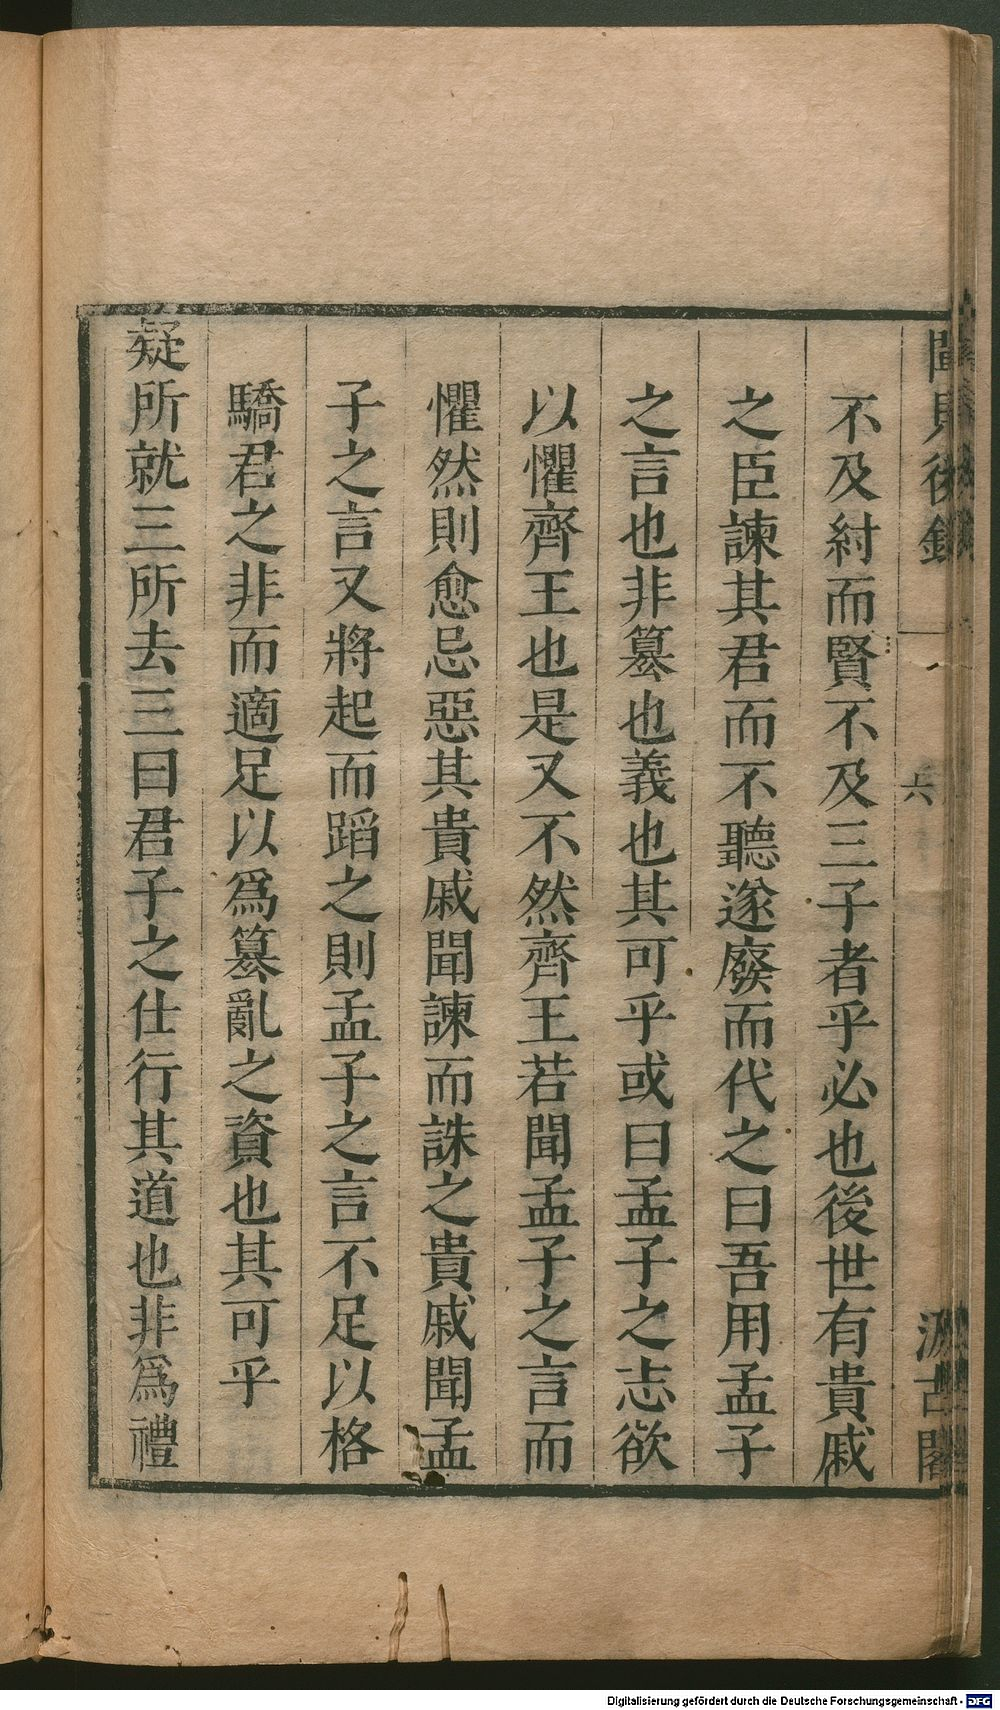 聞見後錄
六
汲古閣
不及紂而賢不及三子者乎必也後世有貴戚
之臣諫其君而不聽遂廢而代之曰吾用孟子
之言也非簒也義也其可乎或曰孟子之志欲
以懼齊王也是又不然齊王若聞孟子之言而
懼然則愈忌惡其貴戚聞諫而誅之貴戚聞孟
子之言又將起而蹈之則孟子之言不足以格
驕君之非而適足以爲簒亂之資也其可乎
疑所就三所去三曰君子之仕行其道也非爲禮
Digitalisierung gefördert durch die Deutsche Forschungsgemeinschaft - DFG